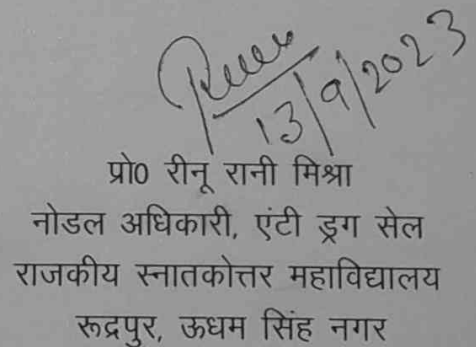 13/9/2023
प्रो0 रीनू रानी मिश्रा
नोडल अधिकारी, एंटी ड्रग सेल
राजकीय स्नातकोत्तर महाविद्यालय
रूद्रपुर, ऊधम सिंह नगर